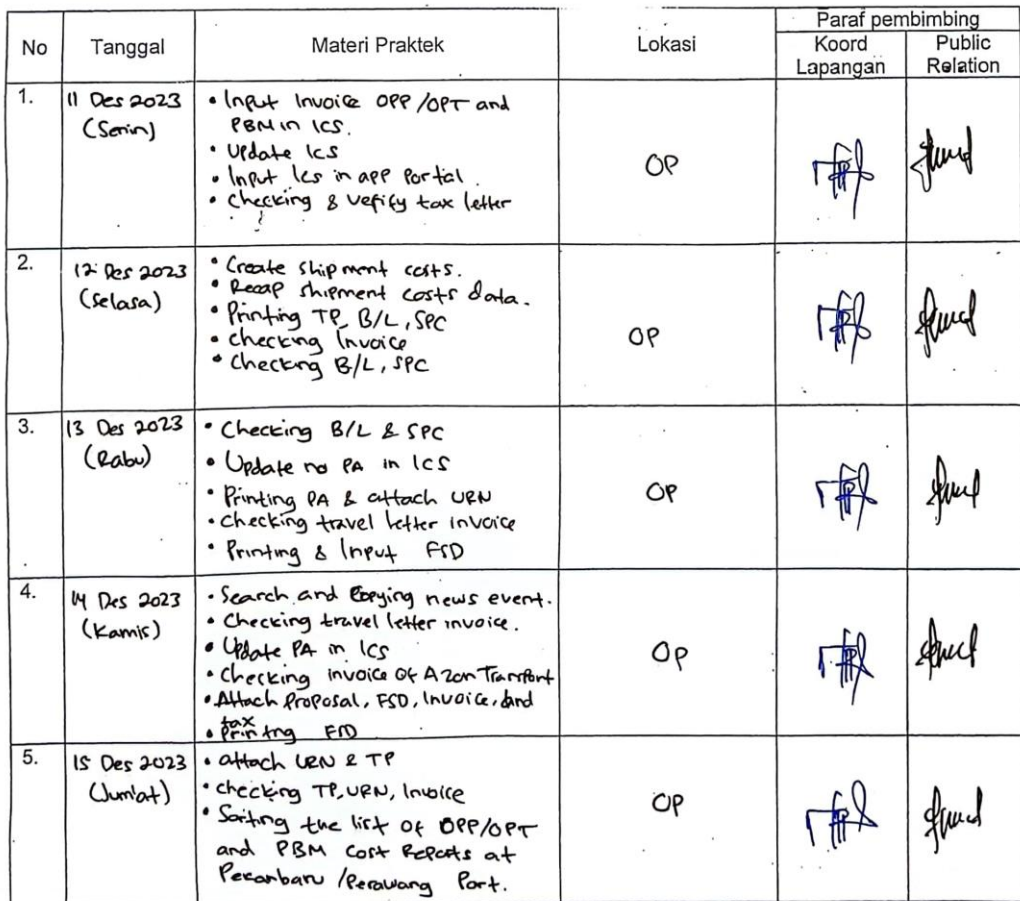 No
Tanggal
Materi Praktek
Lokasi
Paraf pembimbing
Koord
Lapangan
Public
Relation
1.
11 Des 2023
(Senin)
• Input Invoice OPP/OPT and
PBM in ICS.
• Update ICS
• Input Ics in app Portal.
• Checking & Vefify tax letter
OP
2.
12 Des 2023
(Selasa)
• Create shipment costs.
• Recap shipment costs data.
• Printing TP, B/L, SPC
• Checking Invoice
• Checking B/L, SPC
OP
3.
13 Des 2023
(Rabu)
• Checking B/L & SPC
• Update no PA in ICS
• Printing PA & attach URN
• Checking travel letter invoice
• Printing & Input FSD
OP
4.
14 Des 2023
(Kamis)
• Search and Copying news event.
• Checking travel letter invoice.
• Update PA in ICS
• Checking invoice Of Azon Transport
• Attach Proposal, FSD, Invoice, and
tax
• Printng FSD
OP
5.
15 Des 2023
(Jum'at)
• attach URN & TP
• Checking TP, URN, Invoice
• Sorting the list Of OPP/OPT
and PBM Cost Reports at
Pekanbaru /Perawang Port.
OP